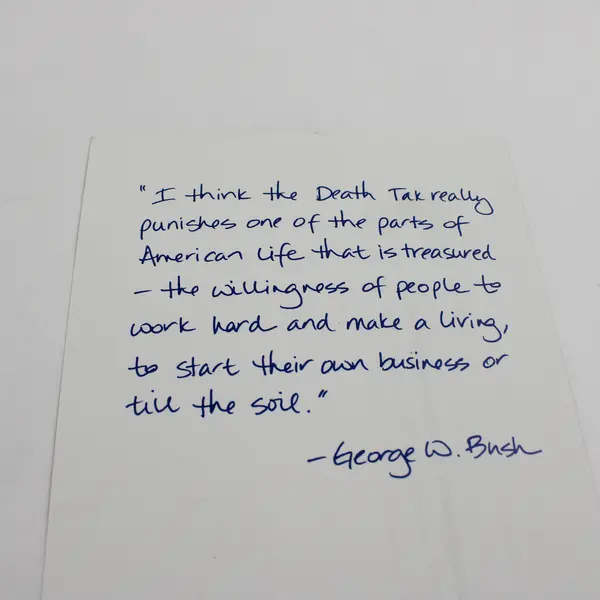 "I think the Death Tax really
punishes one of the parts of
American life that is treasured
– the willingness of people to
work hard and make a living,
to start their own business or
till the soil."
– George W. Bush